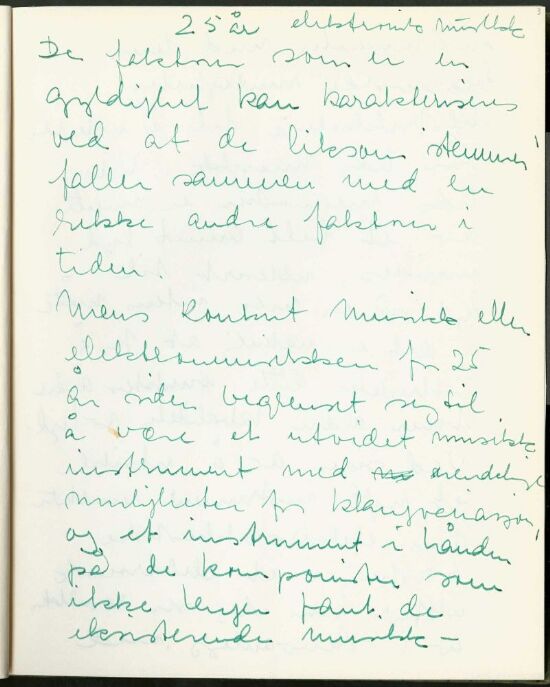 3
25 år elektronisk musikk
De faktorer som er en
gyldighet kan karakteriseres
ved at de liksom stemmer
faller sammen med en
rekke andre faktorer i
tiden
Mens konkret musikk eller
elektronmusikken for 25
år siden begrenset seg til
å være et utvidet musikk
instrument med uendelige
muligheter for klangvariasjon,
og et instrument i hånden
på de komponister som
ikke lenger fant de
eksisterende musikk-